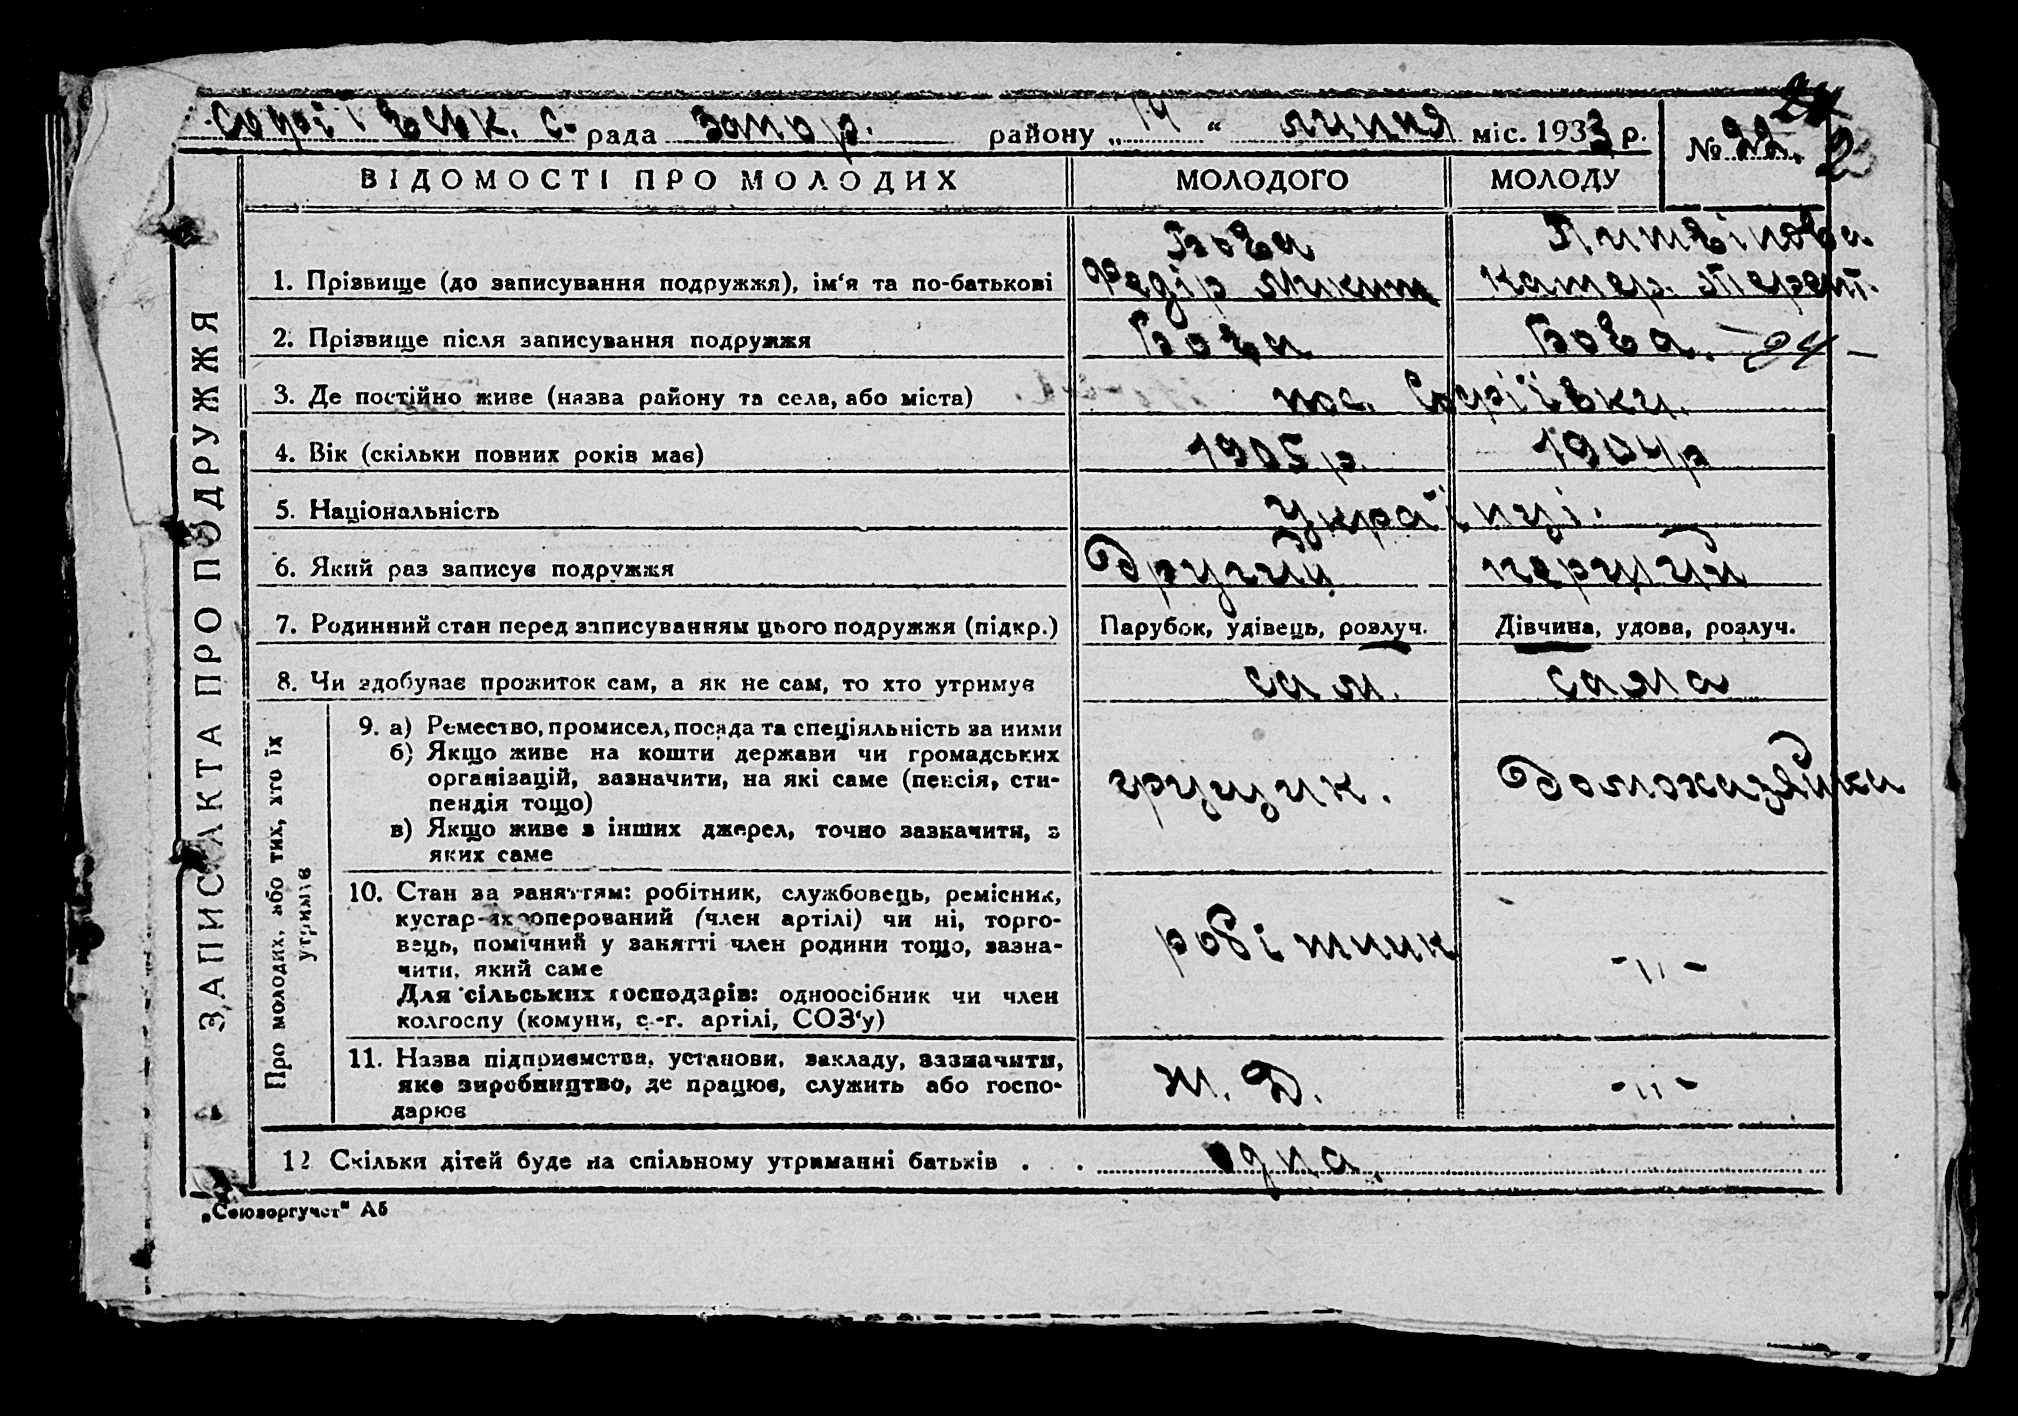 Софіївськ. с. рада Запор. району „ 14 “ липня міс. 1933 р. № 22.
ЗАПИС АКТА ПРО ПОДРУЖЖЯ
ВІДОМОСТІ ПРО МОЛОДИХ МОЛОДОГО МОЛОДУ
Бова Литвінова
1. Прізвище (до записування подружжя), ім‘я та по-батькові Федір Микит Катер. Терент.
2. Прізвище після записування подружжя Бова Бова. – 24 –
3. Де постійно живе (назва району та села, або міста) пос. Софіївки.
4. Вік (скільки повних років має) 1905 р. 1904 р
5. Національність Українці.
6. Який раз записує подружжя другий перший
7. Родинний стан перед записуванням цього подружжя (підкр.) Парубок, удівець, розлуч. Дівчина, удова, розлуч.
8. Чи здобуває прожиток сам, а як не сам, то хто утримує сам. сама
Про молодих, або тих, хто їх утримує
9. а) Ремество, промисел, посада та спеціяльність за ними
б) Якщо живе на кошти держави чи громадських
організацій, зазначити, на які саме (пенсія, сти-
пендія тощо) грузчик. домохазяйка
в) Якщо живе з інших джерел, точно зазначити, з
яких саме
10. Стан за заняттям: робітник, службовець, ремісник,
кустар-вкооперований (член артілі) чи ні, торго-
вець, помічний у занятті член родини тощо, зазна- робітник
чити, який саме -"-
Для сільських господарів: одноосібник чи член
колгоспу (комуни, с.-г. артілі, СОЗ‘у)
11. Назва підприємства, установи, закладу, зазначити,
яке виробництво, де працює, служить або госпо- Ж. Д. -"-
дарює
12 Скільки дітей буде на спільному утриманні батьків . . одна.
„Союзоргучет“ А5